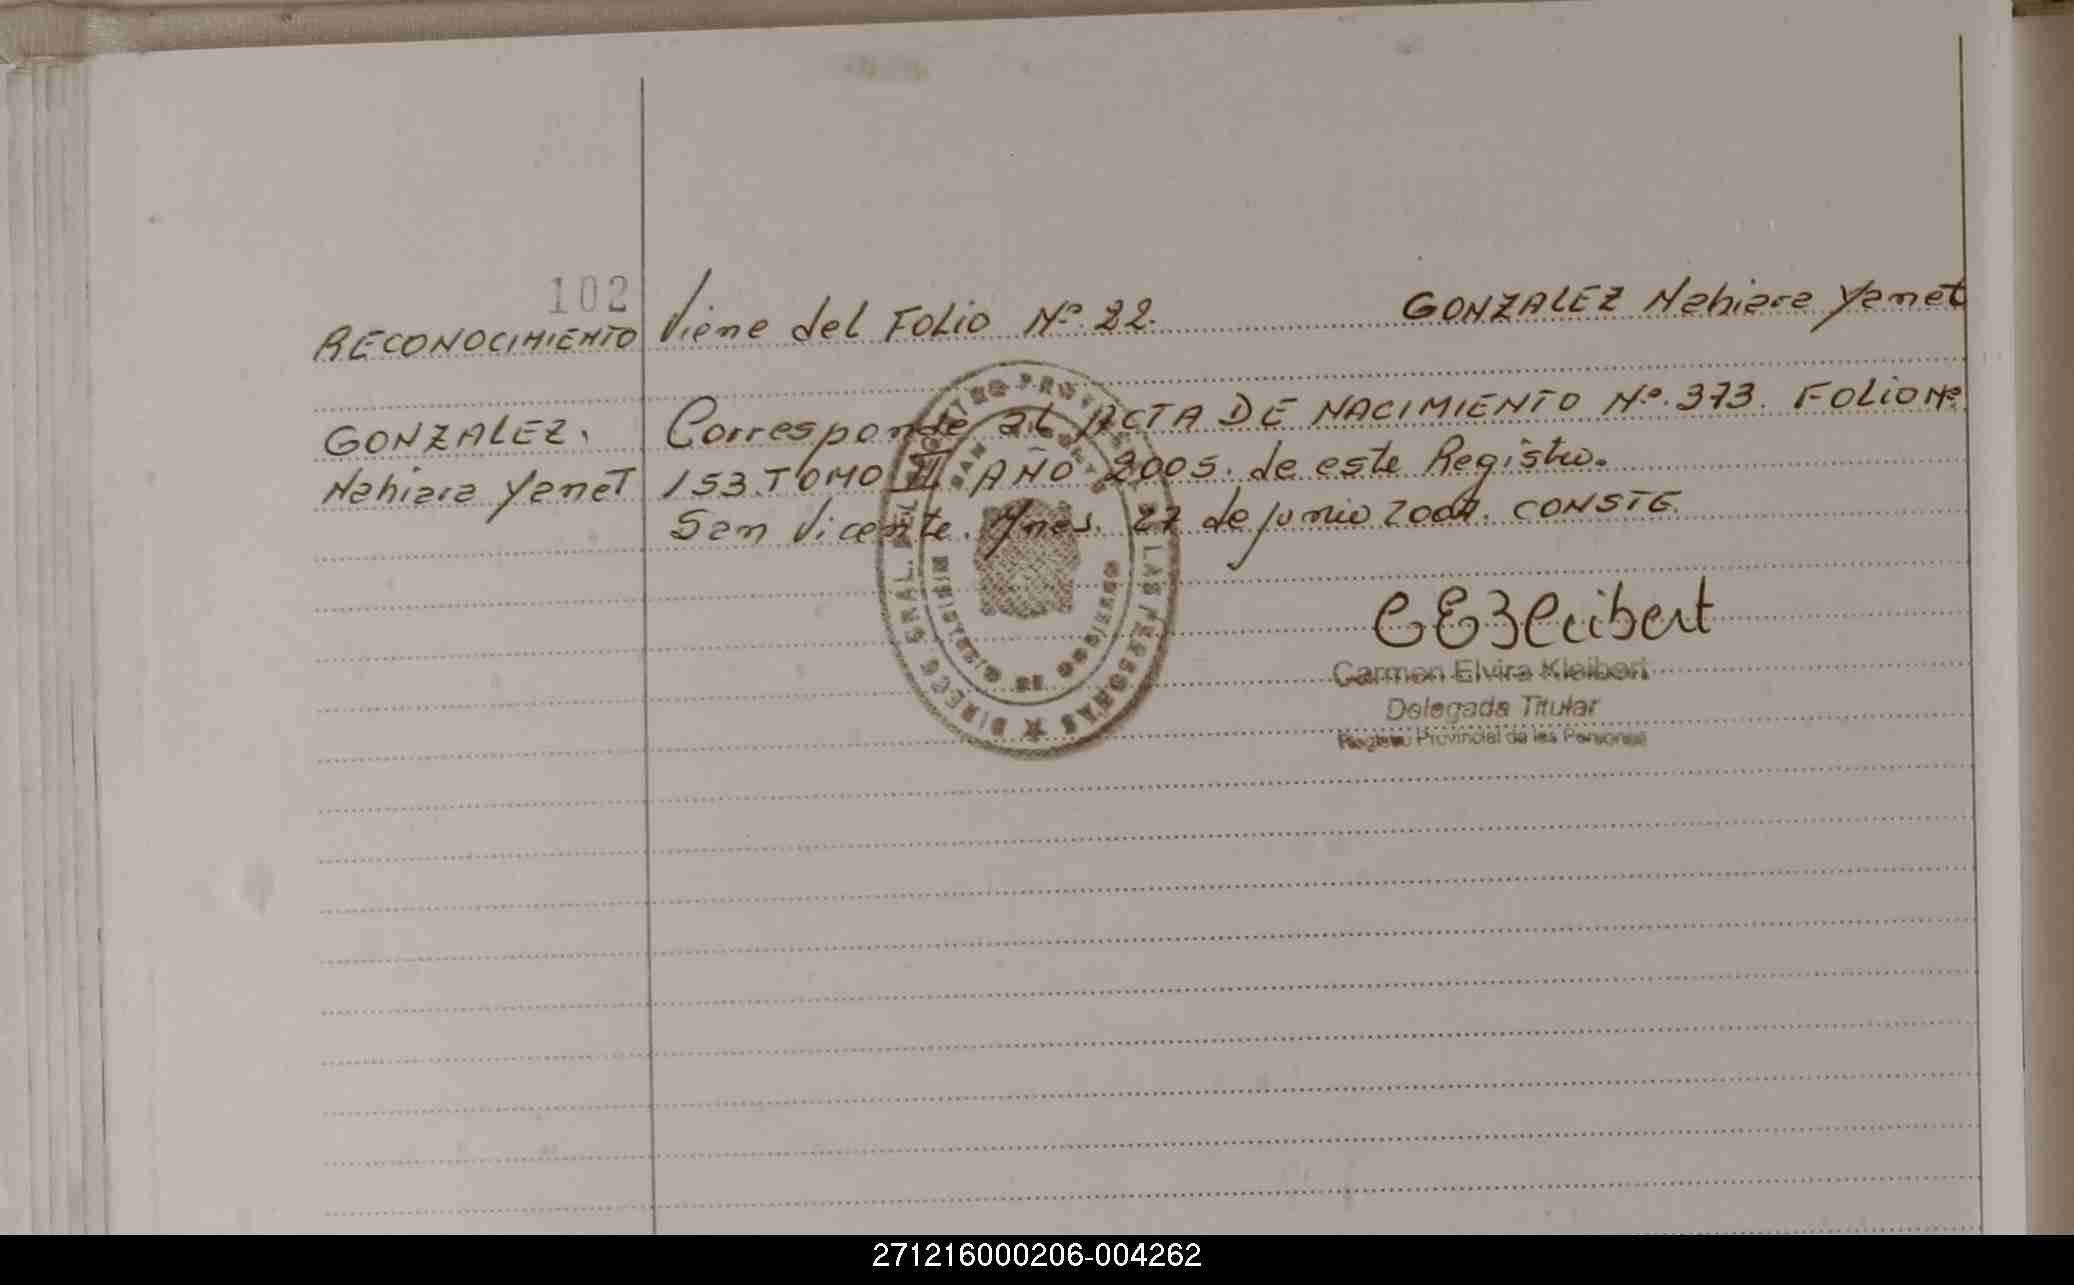 102
RECONOCIMIENTO
GONZALEZ,
Nahiara Yanet
Viene del FOLIO Nº 22. GONZALEZ Nahiara Yanet
Corresponde al ACTA DE NACIMIENTO Nº. 373. FOLIO Nº
153. TOMO II AÑO 2005. de este Registro.
San Vicente. Mnes. 27 de junio 2007. CONSTE.
Carmen Elvira Kleibert
Delegada Titular
Registro Provincial de las Personas
DIRECC. GRAL. DEL REGISTRO PROVINCIAL DE LAS PERSONAS ★
SAN VICENTE
MINISTERIO DE GOBIERNO
271216000206-004262